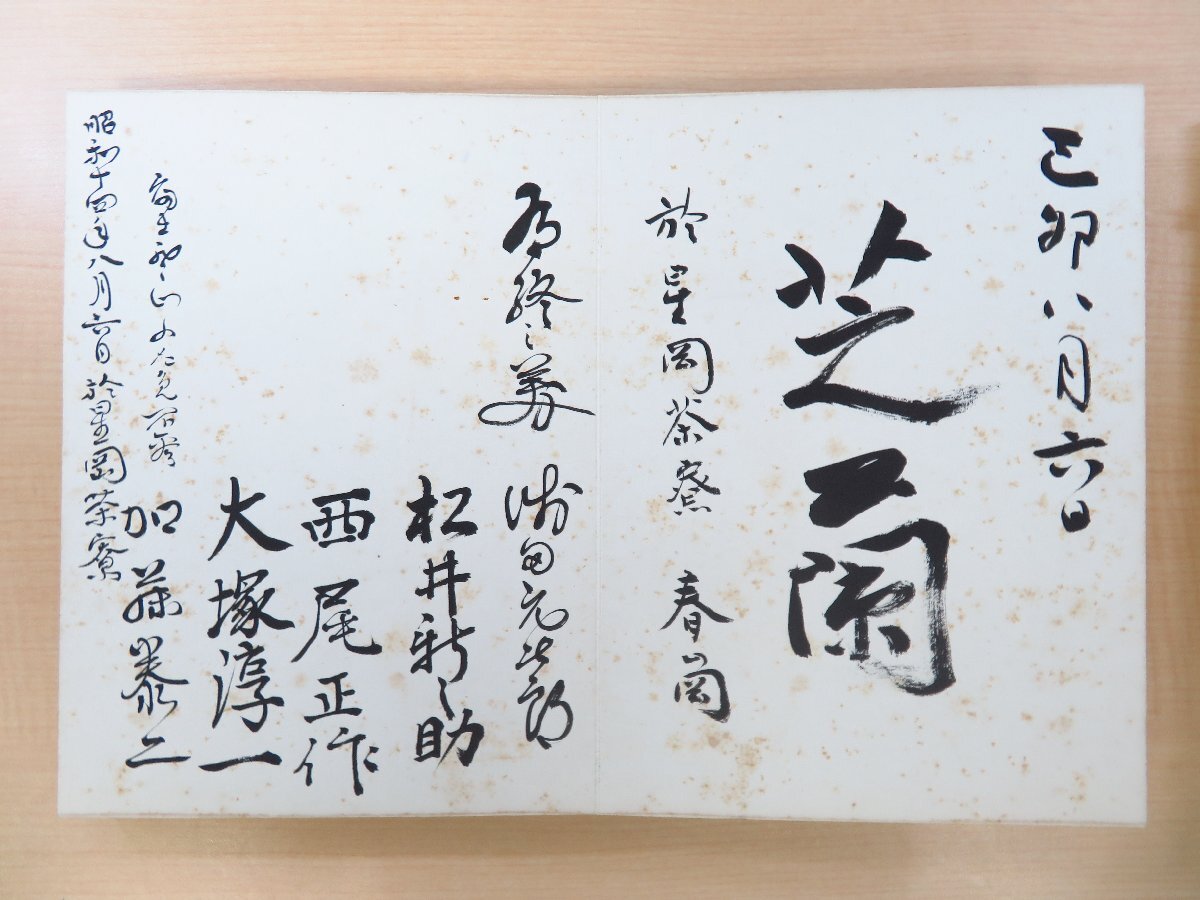 己卯八月六日
芝蘭
於星岡茶寮 春岡
為終之美
元次郎
松井新之助
西尾正作
大塚淳一
加藤泰二
昭和十四年八月六日於星岡茶寮